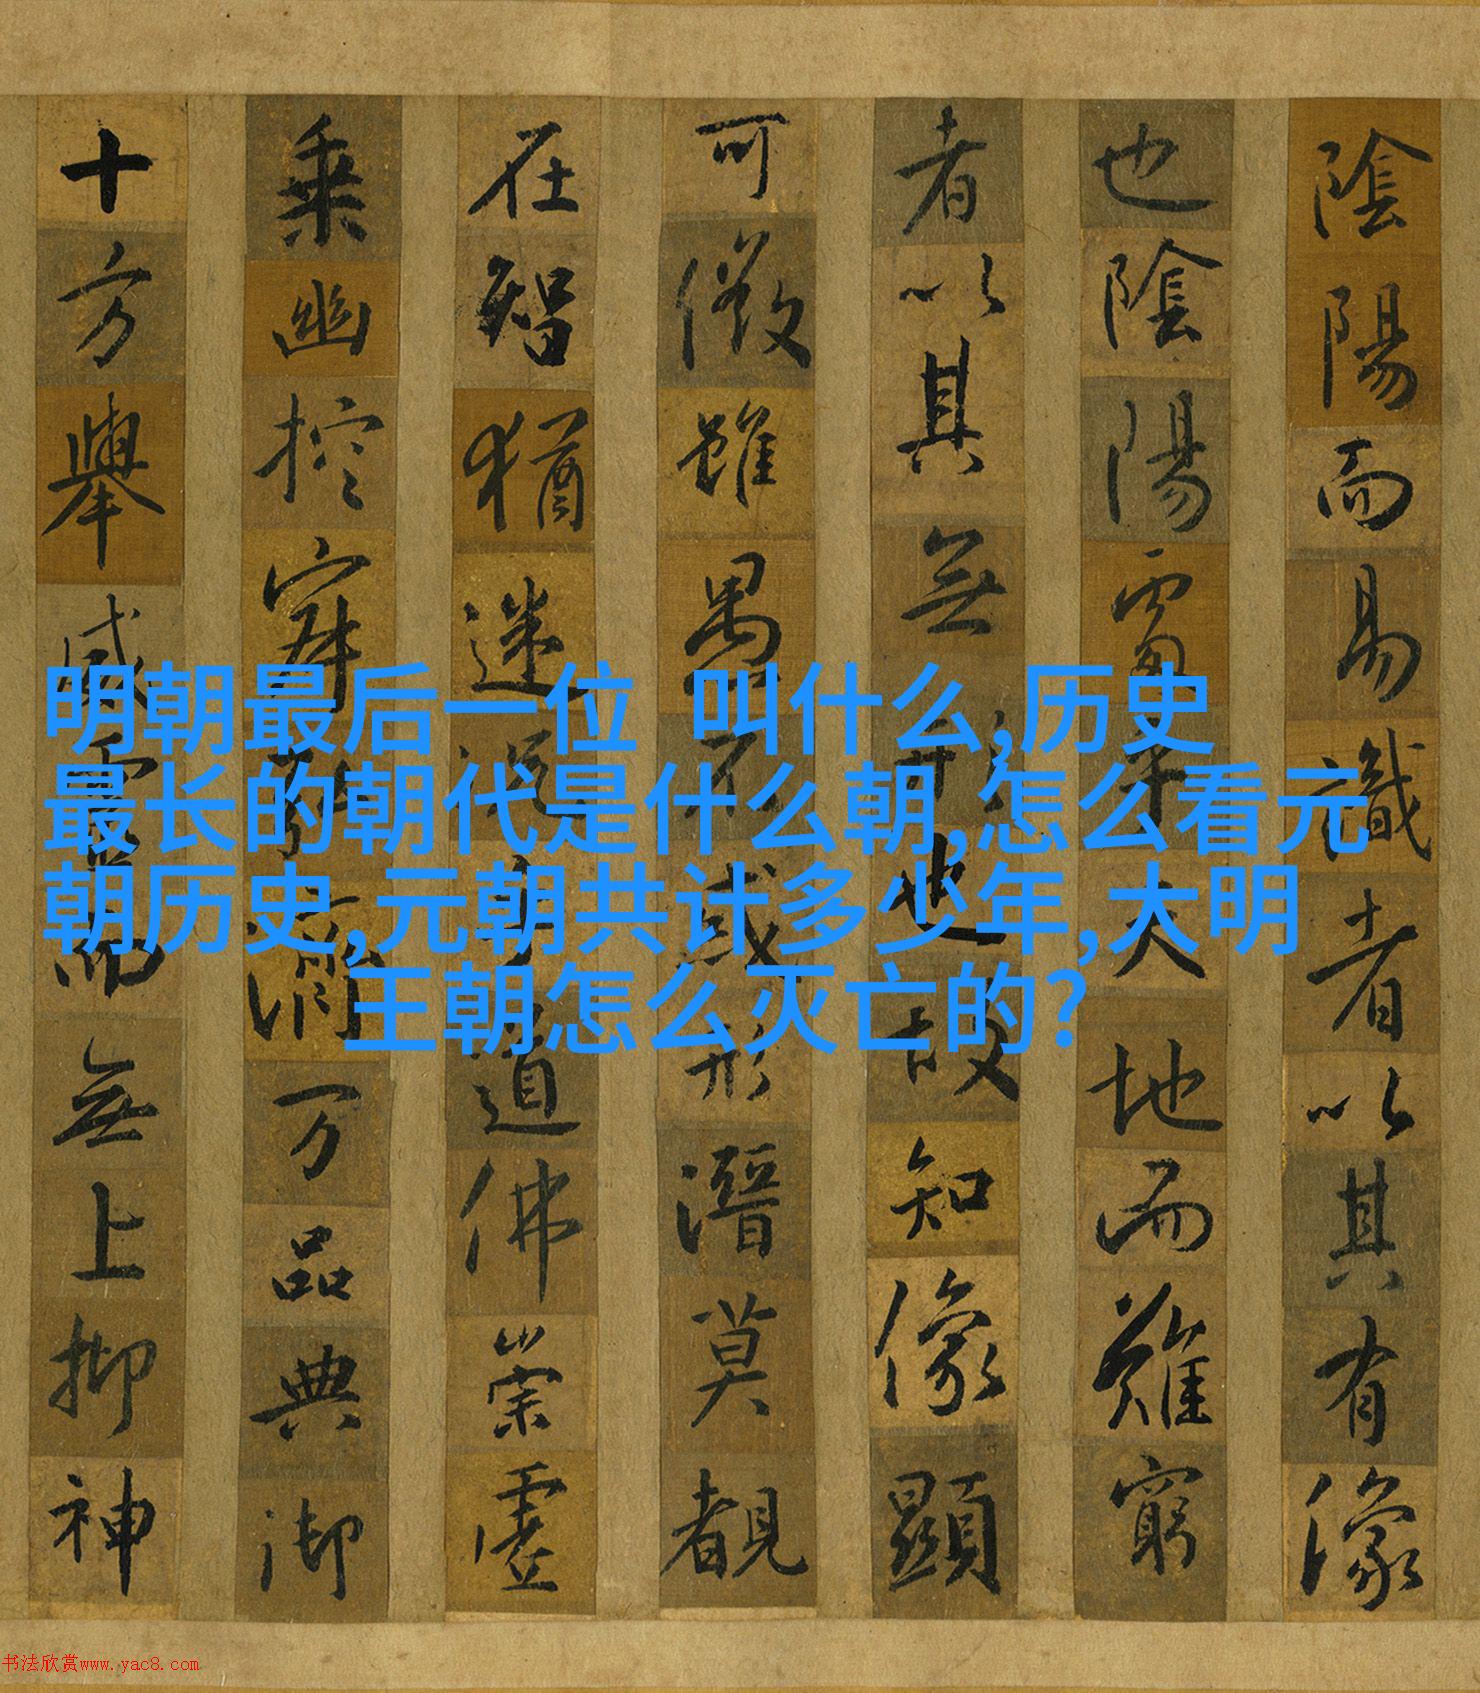 明朝最后一位 叫什么,历史
最长的朝代是什么朝,怎么看元
朝历史,元朝共计多少年,大明
王朝怎么灭亡的?
陰陽而易識者以其有像
也陰陽處乎天地而難窮
者以其無形也故知像顯
可徵雖愚不惑形潛莫覩
在智猶迷況乎道佛崇虛
乘幽控寂弘濟万品典御
十方舉威靈而無上抑神
书法欣赏www.yac8.com